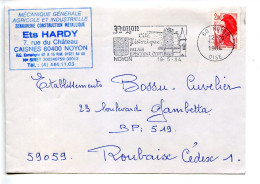 MÉCANIQUE GÉNÉRALE
AGRICOLE ET INDUSTRIELLE
SERRURERIE CONSTRUCTION MÉTALLIQUE
Ets HARDY
7, rue du Château
CAISNES 60400 NOYON
Tél. (4)
Noyon
Cité
historique
NOYON
OISE
Établissements Bossu. Cuvelier
22 boulevard Gambetta
B.P. 519.
59059 Roubaix Cédex 1.